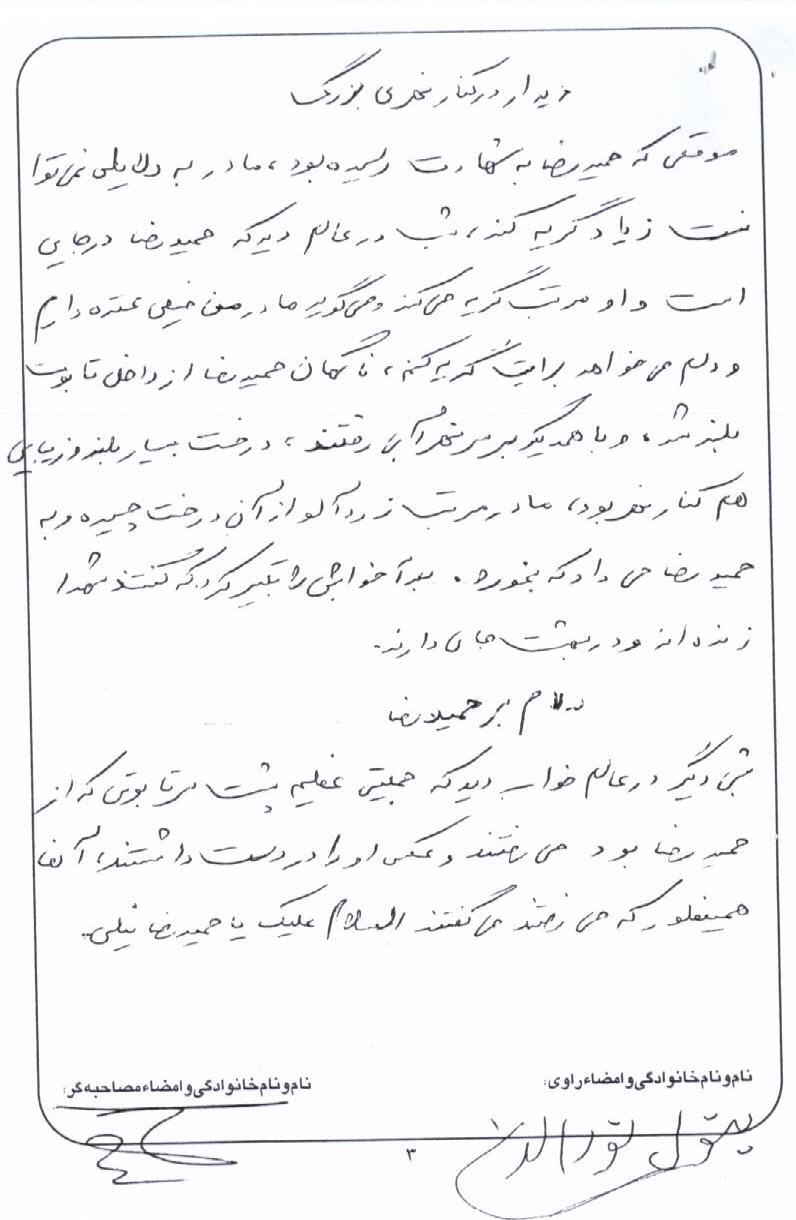 دیدار در کنار نهری بزرگ
موقعی که حمیدرضا به شهادت رسیده بود، مادر به دلایلی نمی توا
نست زیاد گریه کند، شب در عالم دید که حمیدرضا درجایی
است و او مرتب گریه می کند و می گوید مادر من خیلی عقده دارم
و دلم می خواهد برایت گریه کنم، ناگهان حمیدرضا از داخل تابوت
بلند شد، و با همدیگر بر سر نهر آبی رفتند، درخت بسیار بلند و زیبایی
هم کنار نهر بود، مادر مرتب زردآلو از آن درخت چیده و به
حمیدرضا می داد که بخورد. بعداً خوابش را تعبیر کرد که گفتند شهدا
زنده اند و در بهشت جای دارند.
سلام بر حمیدرضا
شبی دیگر در عالم خواب دید که جمعیتی عظیم پشت سر تابوتی که از
حمیدرضا بود می رفتند و عکس او را در دست داشتند، آنها
همینطور که می رفتند می گفتند السلام علیک یا حمیدرضا نیلی.
نام و نام خانوادگی و امضاء راوی:
نام و نام خانوادگی و امضاء مصاحبه گر:
۳